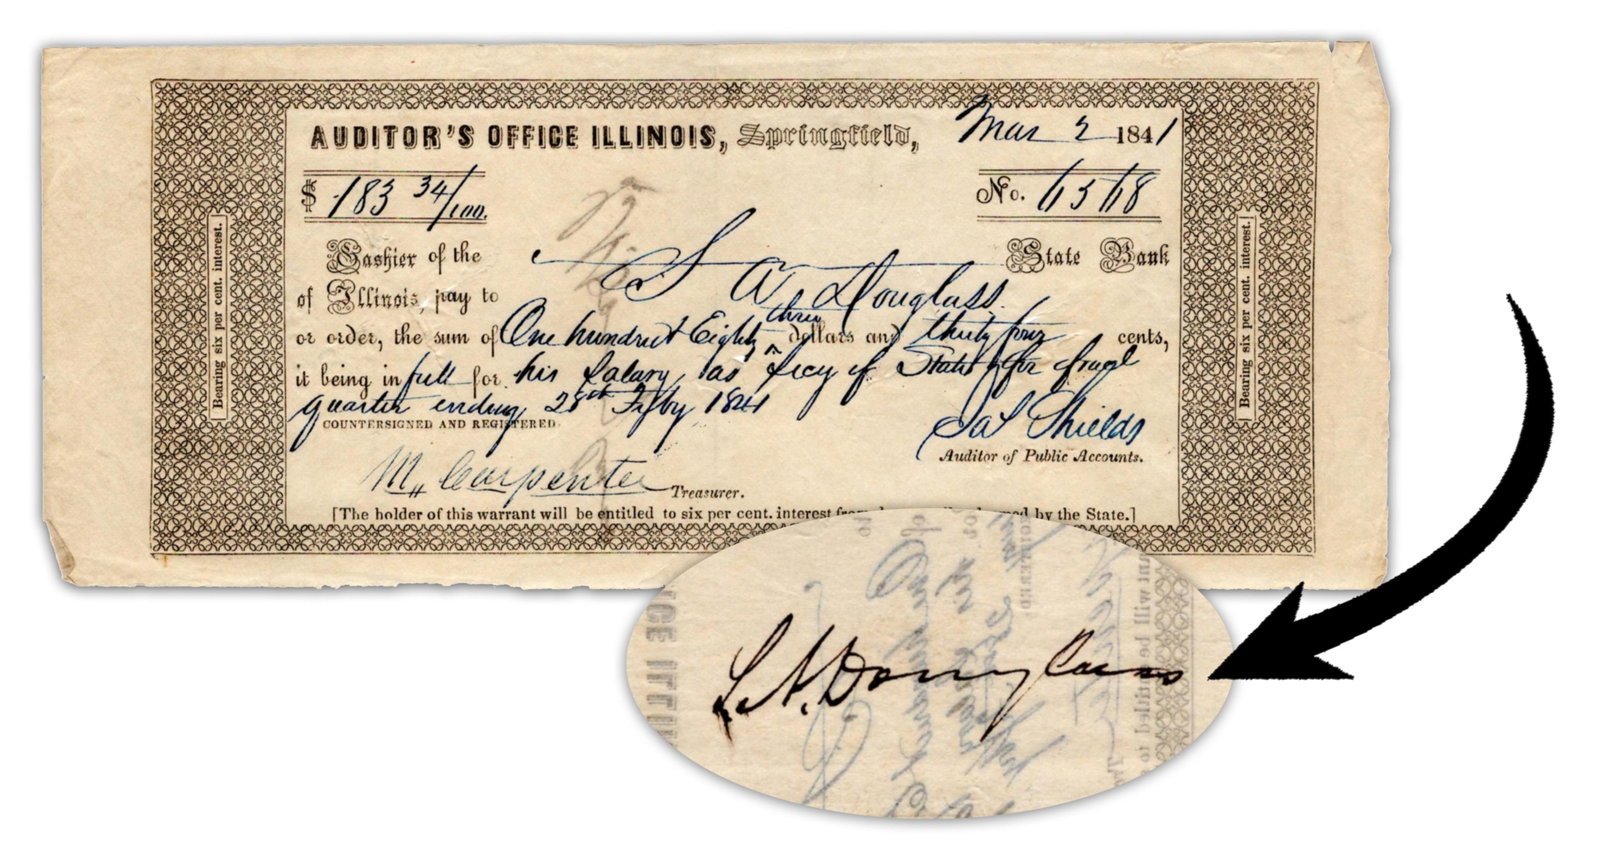 AUDITOR'S OFFICE ILLINOIS, Springfield, Mar 2 1841
$ 183 34/100. No.
S A Douglass
Cashier of the State Bank
of Illinois, pay to
or order, the sum of One hundred Eighty three dollars and thirty four cents,
it being in full for his Salary as Secy of State for fract
quarter ending 28th Feby 1841
COUNTERSIGNED AND REGISTERED
Jas Shields
Auditor of Public Accounts.
M. Carpenter Treasurer.
[The holder of this warrant will be entitled to six per cent. interest by the State.]
Bearing six per cent. interest.
Bearing six per cent. interest.
S. A. Douglass